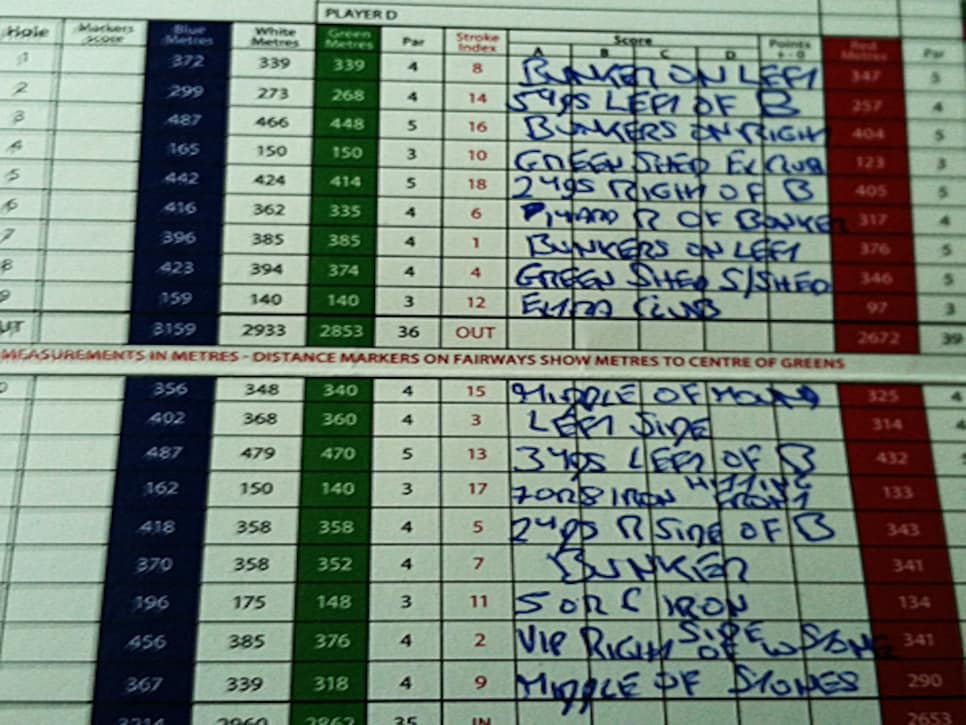 PLAYER D
Hole Markers Score Blue Metres White Metres Green Metres Par Stroke Index Score A B C D Points + - 0 Red Metres Par
1 372 339 339 4 8 BUNKER ON LEFT 347 5
2 299 273 268 4 14 5 YDS LEFT OF B 257 4
3 487 466 448 5 16 BUNKERS ON RIGHT 404 5
4 165 150 150 3 10 GREEN SHED EX CLUB 123 3
5 442 424 414 5 18 2 YDS RIGHT OF B 405 5
6 416 362 335 4 6 1 YARD R OF BUNKER 317 4
7 396 385 385 4 1 BUNKERS ON LEFT 376 5
8 423 394 374 4 4 GREEN SHED S/SHED 346 5
9 159 140 140 3 12 EXTRA CLUB 97 3
OUT 3159 2933 2853 36 OUT 2672 39
MEASUREMENTS IN METRES - DISTANCE MARKERS ON FAIRWAYS SHOW METRES TO CENTRE OF GREENS
356 348 340 4 15 MIDDLE OF 325 4
402 368 360 4 3 LEFT SIDE 314 4
487 479 470 5 13 3 YDS LEFT OF B 432
162 150 140 3 17 7 OR 8 IRON HITTING FRONT 133
418 358 358 4 5 2 YDS R SIDE OF B 343
370 358 352 4 7 BUNKER 341
196 175 148 3 11 5 OR 6 IRON 134
456 385 376 4 2 VIP RIGHT SIDE OF W STONE 341
367 339 318 4 9 MIDDLE OF STONES 290
3214 2960 2862 35 IN 2653